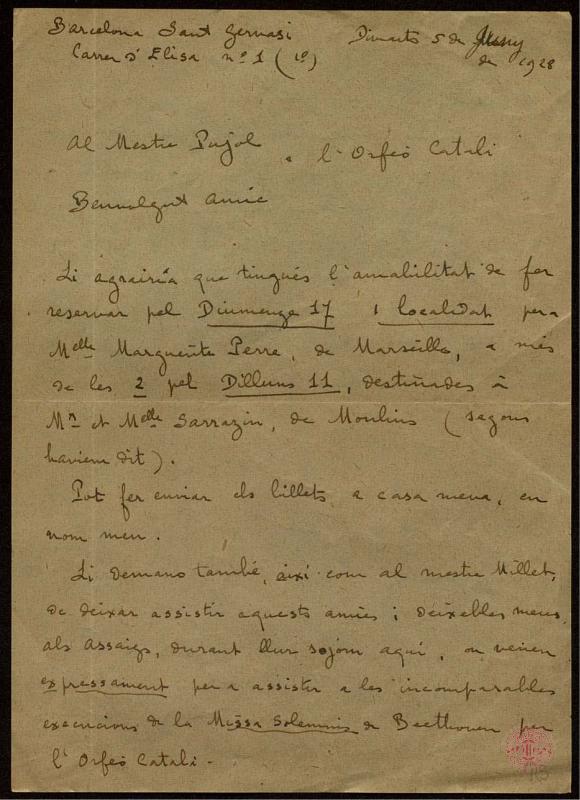 Barcelona Sant Gervasi
Carrer St Elisa nº 1 (1º)
Dimarts 5 de Juny
de 1928
Al Mestre Pujol
a l'Orfeó Catali
Benvolgut amic
Li agrairia que tingués l'amabilitat de fer
reservar pel Diumenge 17 1 localidat per a
Melle Marguerite Perre, de Marseille, a més
de les 2 pel Dilluns 11, destinades à
Mr et Melle Sarrazin, de Moulins (segons
haviem dit).
Pot fer enviar els billets a casa meva, en
nom meu.
Li demano també, així com al mestre Millet,
de deixar assistir aquests amics i deixebles meus
als assaigs, durant llur sojorn aquí, on venen
expressament per a assistir a les incomparables
execucions de la Missa Solemnis de Beethoven per
l'Orfeó Catali.